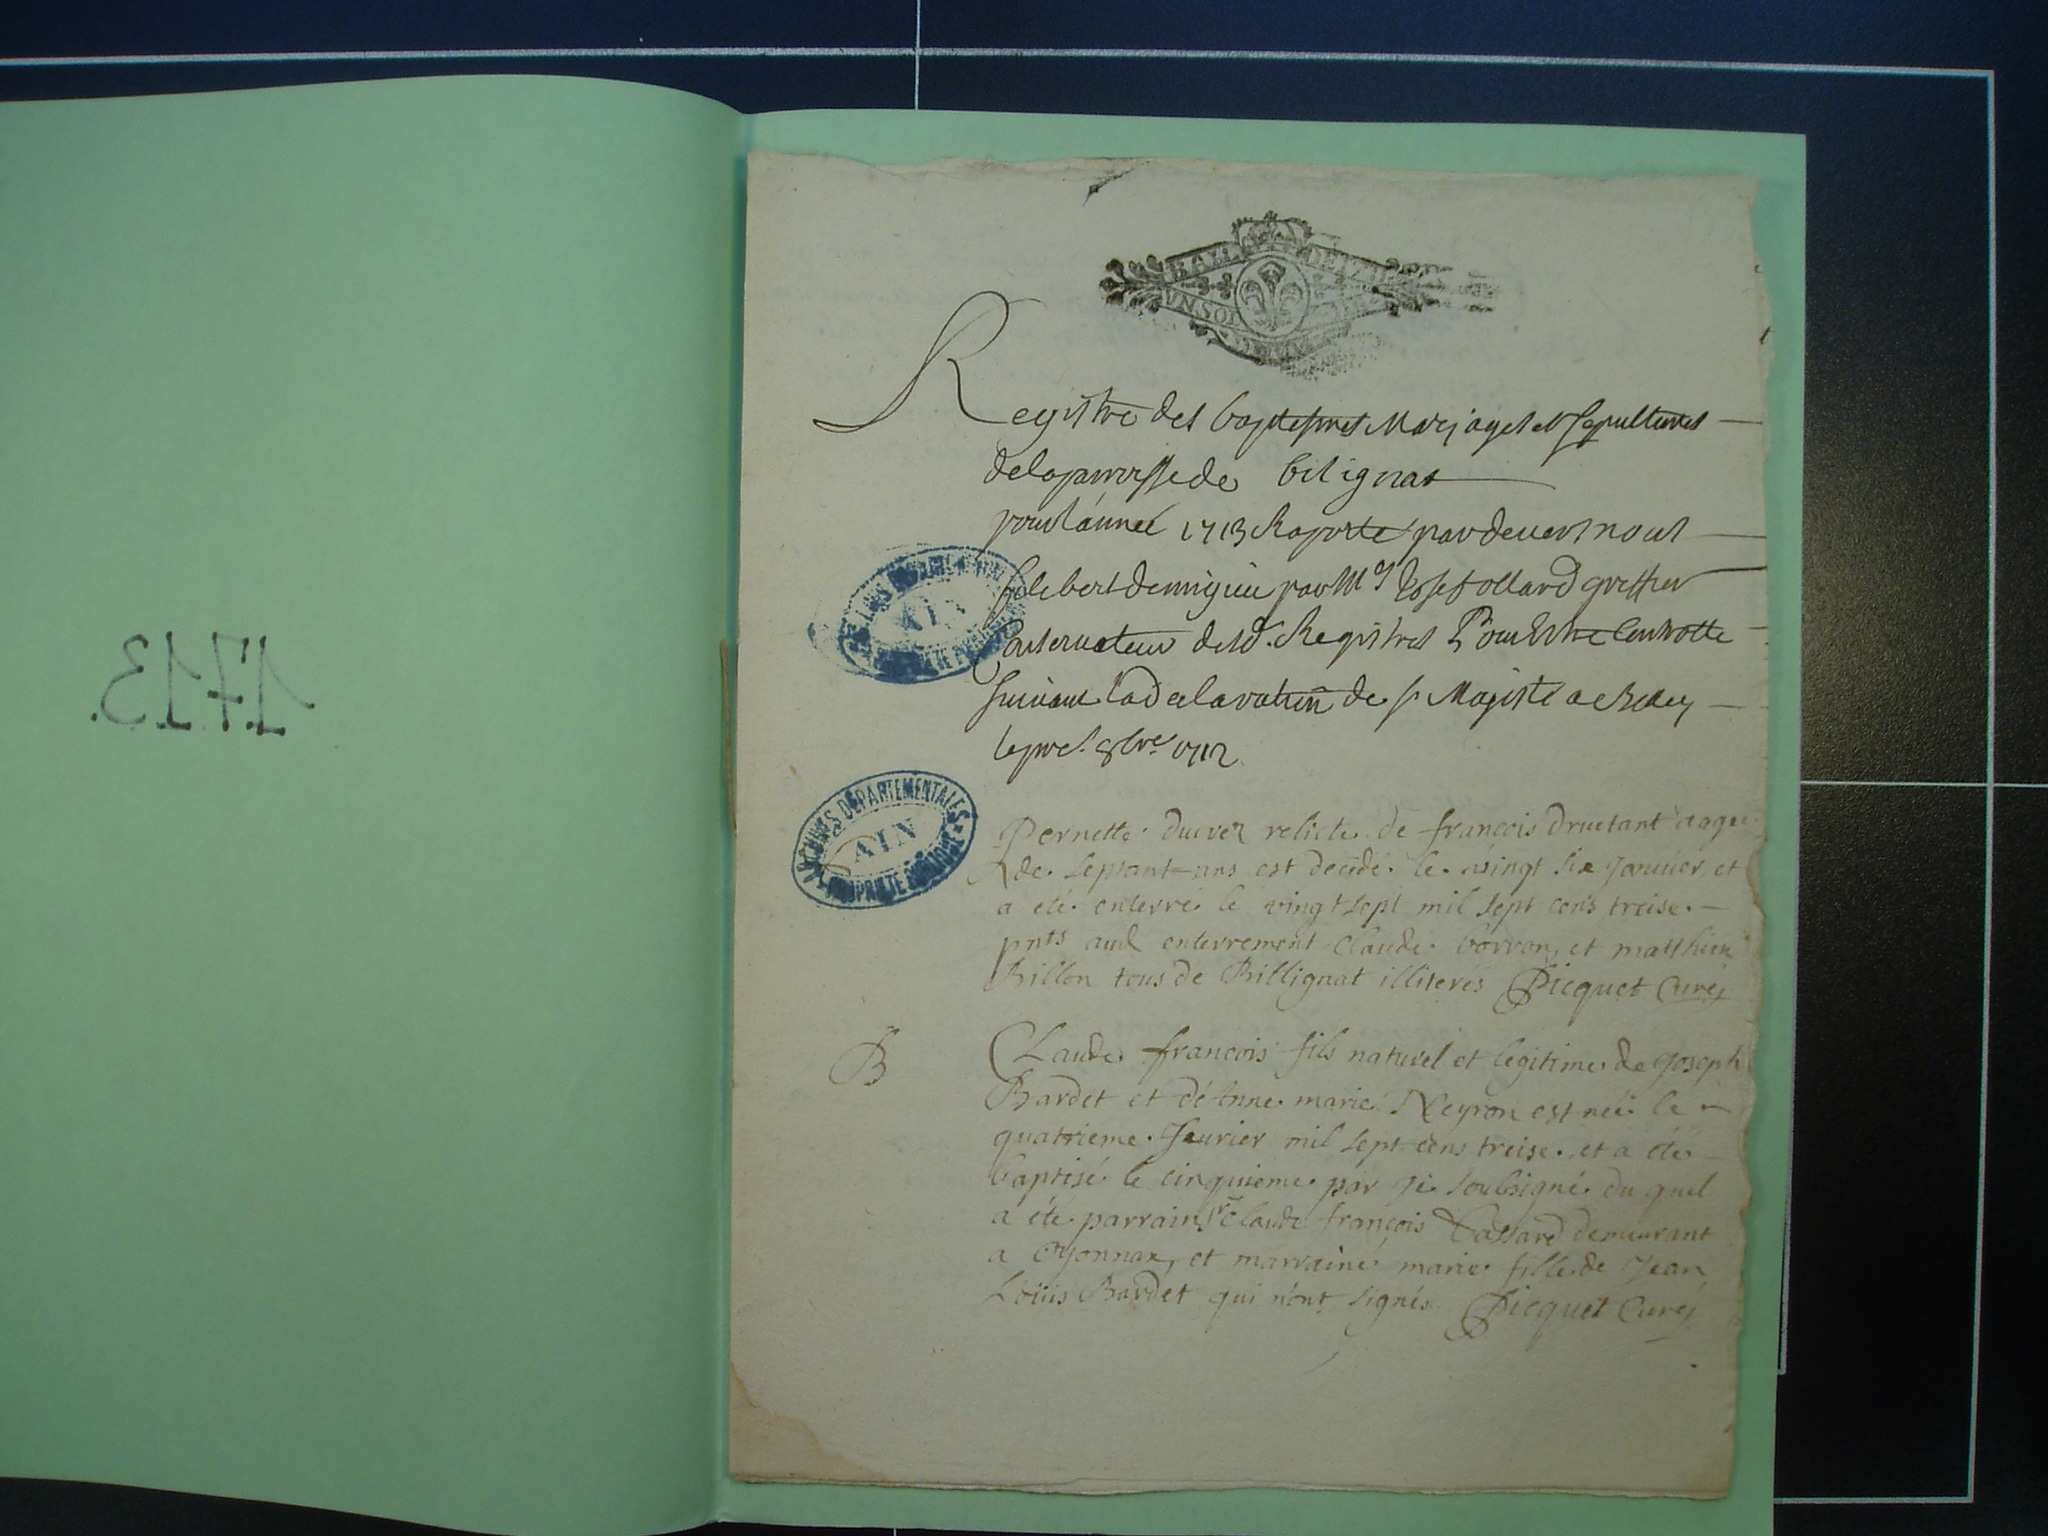 1713.
UN SOL
Registre des baptesmes Mariages et Sepultures
de la parroisse de bilignat
pour lannée 1713 Raporte pardevers nous
par Mr Josef ollard greffier
Conservateur desd. Registres Pour Estre Controlle
suivant la declaration de sa Majesté a Belley
le pre. 8bre 1712
ARCHIVES DÉPARTEMENTALES
AIN
PROPRIÉTÉ PUBLIQUE
Pernette ducrez relicte de françois druetant aagée
de septant ans est decedé le vingt six Januier et
a eté enterré le vingt sept mil sept cens treise.
pnts aud enterrement Claude borron, et matthieu
Billon tous de Billignat illiterés Picquet Curéj
B
Claude françois fils naturel et legitime de Joseph
Bardet et d'Anne marie Neyron est neé le
quatrieme feurier mil sept cens treise. et a été
baptisé le cinquieme par je soubsigné du quel
a été parrain sr Claude françois Tassard demeurant
a Oyonnax, et marraine marie fille de Jean
Loüis Bardet qui n'ont signés Picquet Curéj